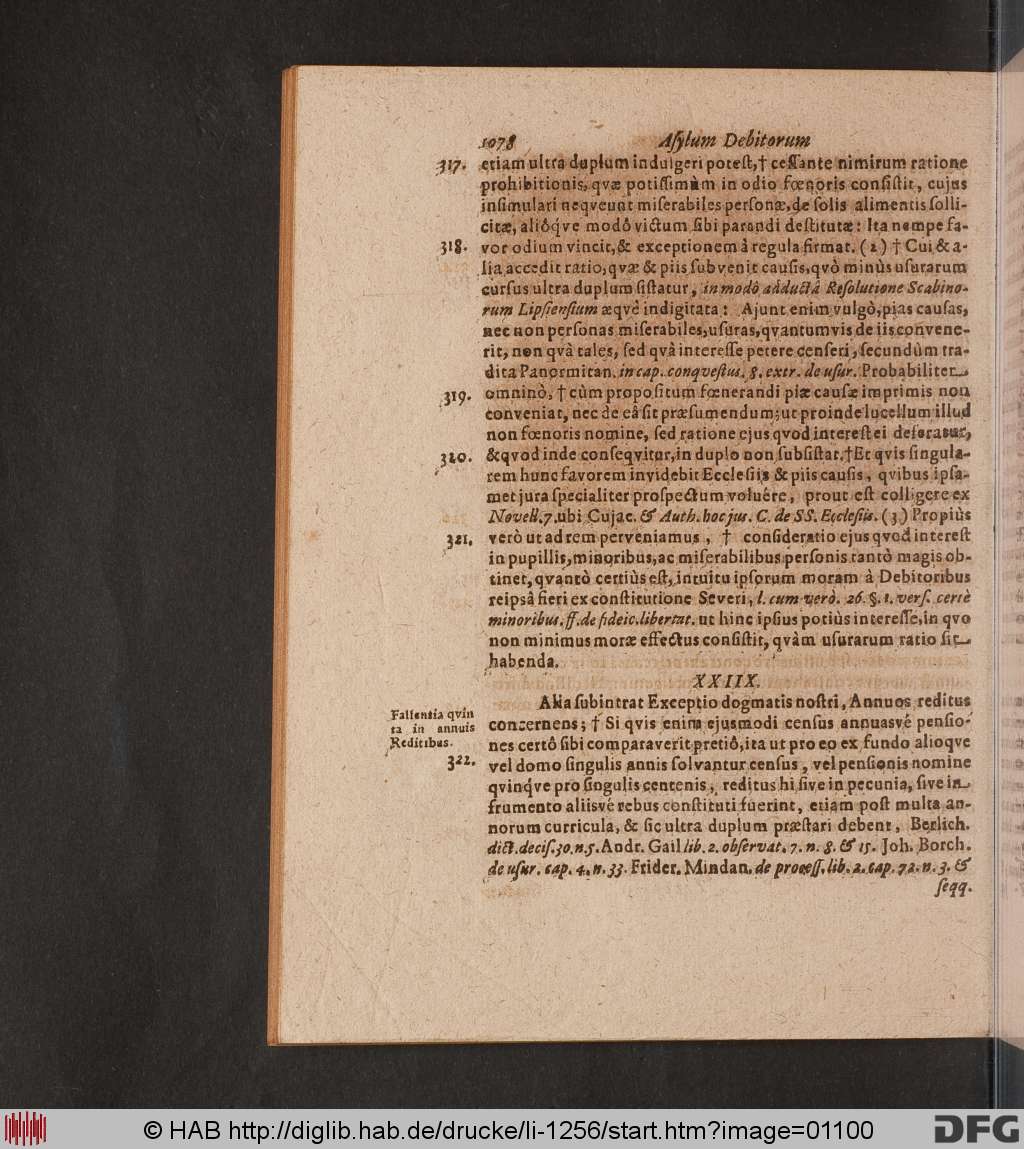 1078 Aſylum Debitorum
317. etiam ultra duplum indulgeri poteſt, † ceſſante nimirum ratione
prohibitionis, qvæ potiſſimùm in odio fœnoris conſiſtit, cujus
inſimulari neqveunt miſerabiles perſonæ, de ſolis alimentis ſolli-
citæ, aliôq́ve modô victum ſibi parandi deſtitutæ: Ita nempe fa-
318. vor odium vincit, & exceptionem â regula firmat. (2) † Cui & a-
lia accedit ratio, qvæ & piis ſubvenit cauſis, qvò minùs uſurarum
curſus ultra duplum ſiſtatur, in modò adductâ Reſolutione Scabino-
rum Lipſienſium æqvè indigitata: Ajunt enim vulgò, pias cauſas,
nec non perſonas miſerabiles, uſuras, qvantumvis de iis convene-
rit, non qvà tales, ſed qvâ intereſſe petere cenſeri, ſecundùm tra-
dita Panormitan. in cap. conqveſtus. 8. extr. de uſur. Probabiliter
319. omninò, † cùm propoſitum fœnerandi piæ cauſæ imprimis non
conveniat, nec de eâ ſit præſumendum; ut proinde lucellum illud
non fœnoris nomine, ſed ratione ejus qvod intereſt ei deferatur,
320. & qvod inde conſeqvitur, in duplo non ſubſiſtat. † Et qvis ſingula-
rem hunc favorem invidebit Eccleſiis & piis cauſis, qvibus ipſa-
met jura ſpecialiter proſpectum voluêre, prout eſt colligere ex
Novell. 7. ubi Cujac. & Auth. hoc jus. C. de SS. Eccleſiis. (3) Propiùs
321. verò ut ad rem perveniamus, † conſideratio ejus qvod intereſt
in pupillis, minoribus, ac miſerabilibus perſonis tantò magis ob-
tinet, qvantò certiùs eſt, intuitu ipſorum moram à Debitoribus
reipsâ fieri ex conſtitutione Severi, l. cum verò. 26. §. 1. verſ. certè
minoribus. ff. de fideic. libertat. ut hinc ipſius potiùs intereſſe, in qvo
non minimus moræ effectus conſiſtit, qvàm uſurarum ratio ſit
habenda.
XXIIX.
Alia ſubintrat Exceptio dogmatis noſtri, Annuos reditus
Fallentia qvin
ta in annuis
Reditibus.
concernens; † Si qvis enim ejusmodi cenſus annuasvé penſio-
nes certô ſibi comparaverit pretiô, ita ut pro eo ex fundo alioqve
322. vel domo ſingulis annis ſolvantur cenſus, vel penſionis nomine
qvinq́ve pro ſingulis centenis, reditus hi ſive in pecunia, ſive in
frumento aliisvé rebus conſtituti fuerint, etiam poſt multa an-
norum curricula, & ſic ultra duplum præſtari debent, Berlich.
dict. deciſ. 30. n. 5. Andr. Gail lib. 2. obſervat. 7. n. 8. & 15. Joh. Borch.
de uſur. cap. 4. n. 33. Frider. Mindan. de proceſſ. lib. 2. cap. 72. n. 3. &
ſeqq.
© HAB http://diglib.hab.de/drucke/li-1256/start.htm?image=01100
DFG